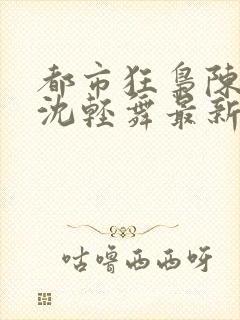 都市狂梟陳
沈輕舞最新
咕嚕西西呀